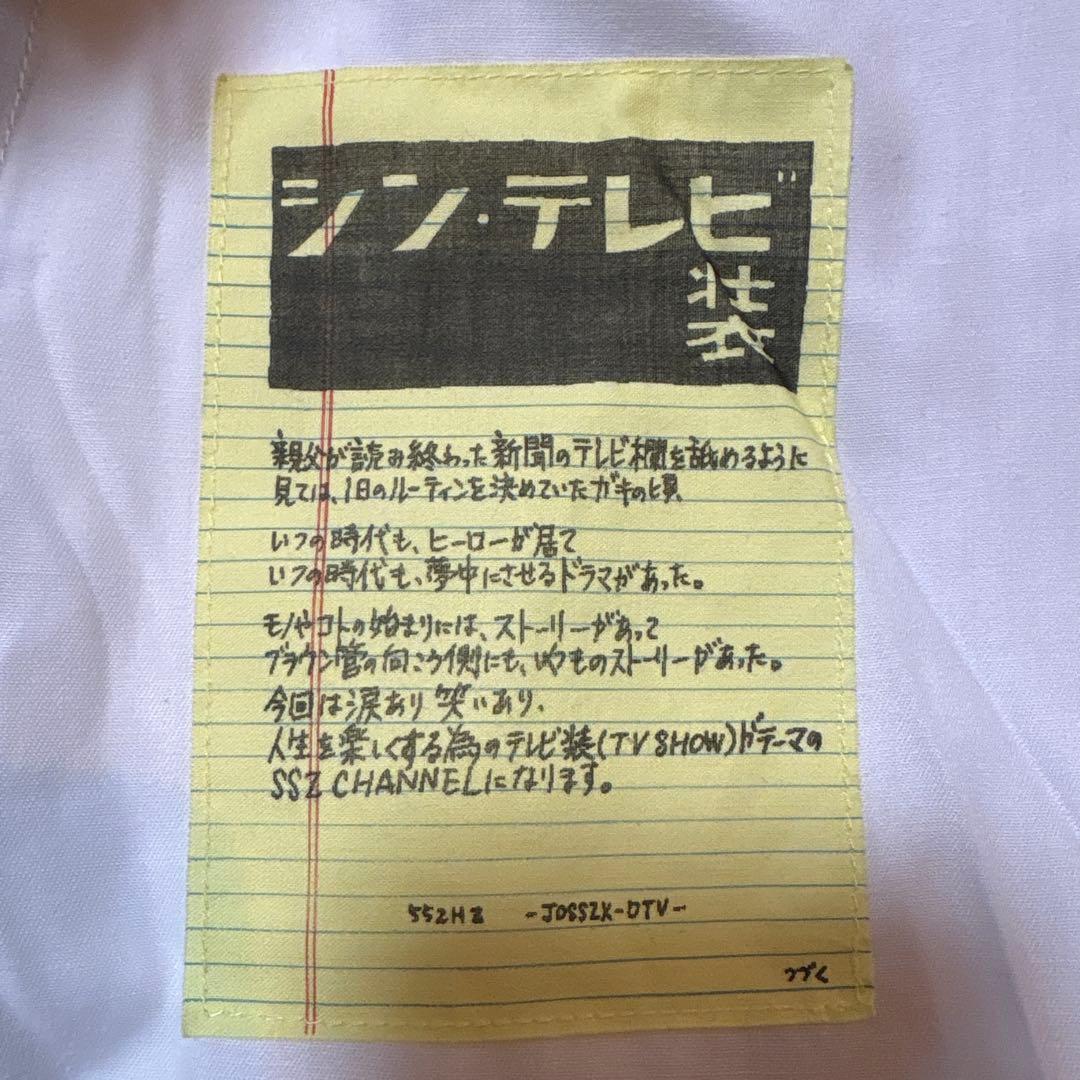 シン・テレビ
装
親父が読み終わった新聞のテレビ欄を舐めるように
見ては、1日のルーティンを決めていたガキの頃、
いつの時代も、ヒーローが居て
いつの時代も、夢中にさせるドラマがあった。
モノやコトの始まりには、ストーリーがあって
ブラウン管の向こう側にも、いつものストーリーがあった。
今回は涙あり笑いあり、
人生を楽しくする為のテレビ装(TV SHOW)がテーマの
SSZ CHANNELになります。
SSZHZ -JOSSZX-DTV-
つづく